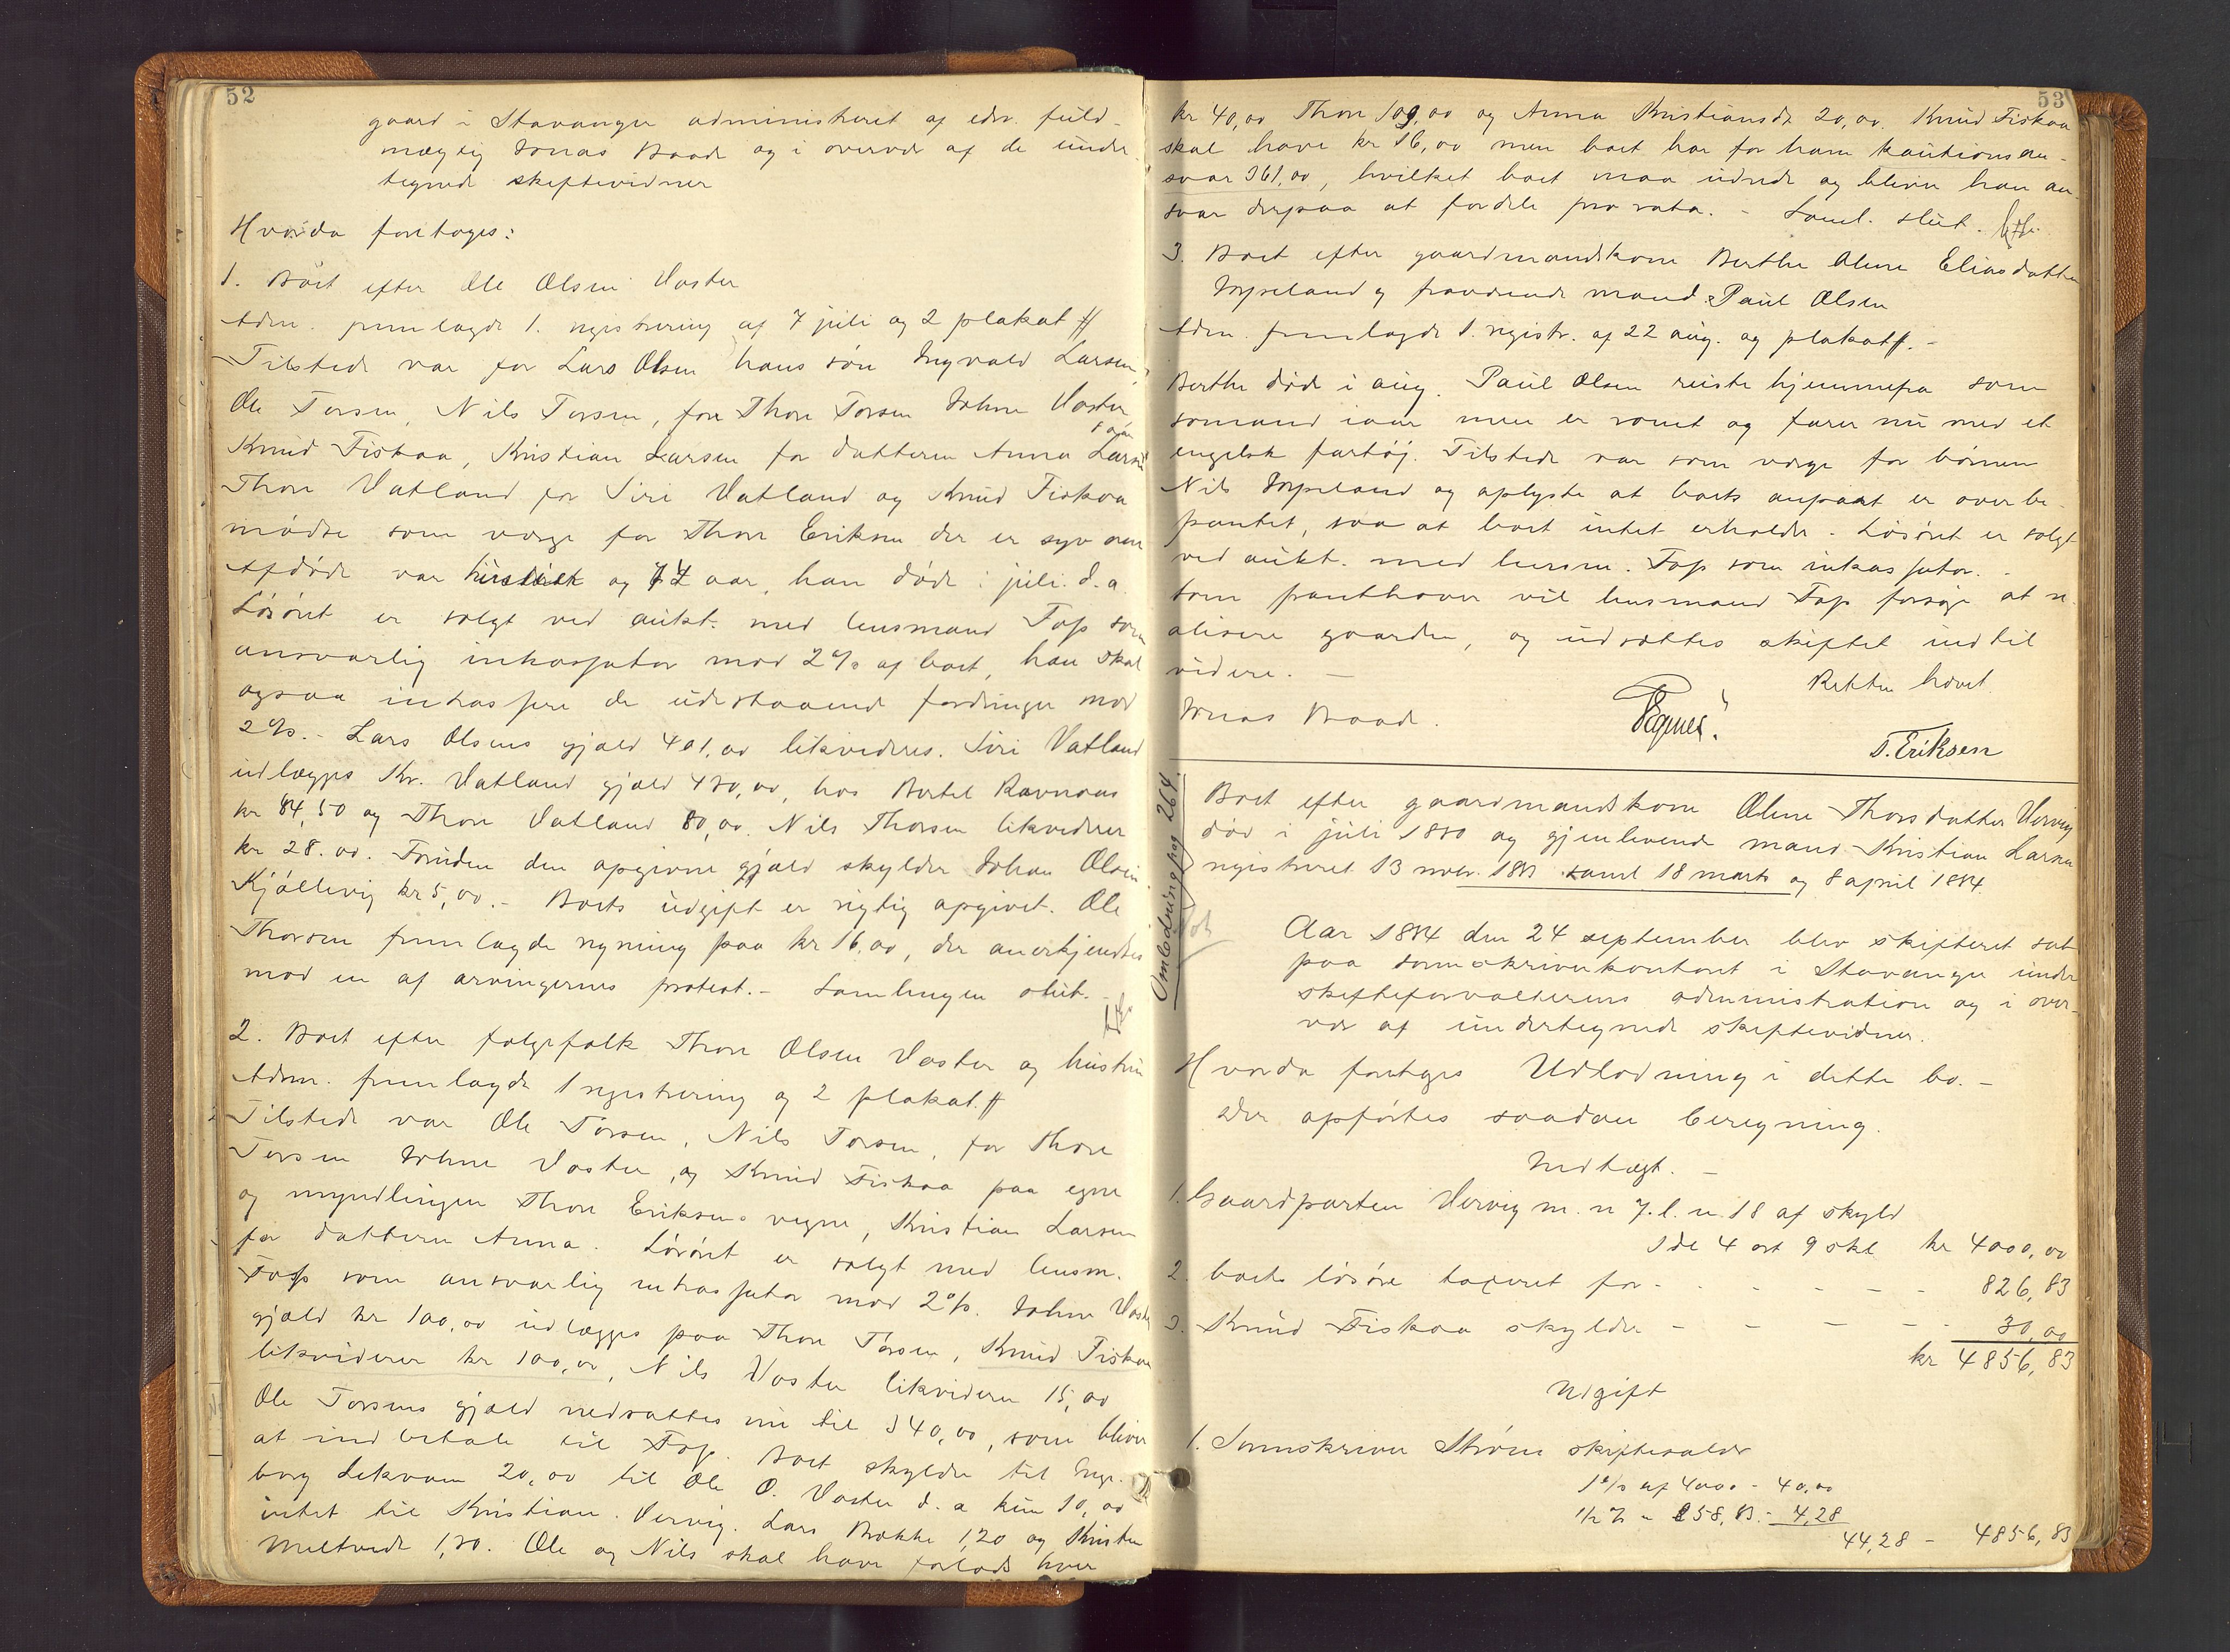 52
gaard i Stavanger administreret af edsv. fuld-
mægtig Jonas Braade og i overvær af de under
tegnede skiftevidner
Hvorda foretoges:
1. Boet efter Ole Olsen Vaster
Adm. fremlagde 1. registrering af 7 juli og 2 plakat #
Tilstede var for Lars Olsen hans søn Ingvald Larsen,
Ole Torsen, Nils Torsen, for Thore Torsen Johne Vaster
Knud Fiskaa, Kristian Larsen for datteren Anna
Thore Vatland for Siri Vatland og Knud Fiskaa
mødte som værge for Thore Eriksen der er syv aar
Afdøde var og aar, han døde i juli d. a.
Løsøret er solgt ved aukt. med lensmand Fop som
ansvarlig inkassator mod 2 % af boet, han skal
ogsaa inkassere de udestaaende fordringer mod
2 %. - Lars Olsens gjæld 401,00 likvideres. Siri Vatland
udlægges Kr. Vatland gjæld 430,00, hos Bertel Ravnaas
kr 84,50 og Thore Vatland 80,00. Nils Thorsen likviderer
kr 28.00. Foruden den opgivne gjæld skylder Johan Olsen
Kjøllevig kr 5,00. - Boets udgift er rigtig opgivet. Ole
Thorsen fremlagde regning paa kr 16,00, der anerkjendtes
mod en af arvingernes protest. - Samlingen slut. -
2. Boet efter følgefolk Thore Olsen Vaster og hustru
Adm. fremlagde 1 registrering og 2 plakat. #
Tilstede var Ole Torsen, Nils Torsen, for Thore
Torsen Johne Vaster, og Knud Fiskaa paa egne
og myndlingen Thore Eriksens vegne, Kristian Larsen
for datteren Anna. Løsøret er solgt med lensm.
Fop som ansvarlig inkassator mod 2 %. Johne Vaster
gjæld kr 100,00 udlægges paa Thore Torsen, Knud Fiskaa
likviderer kr 100,00, Nils Vaster likviderer 15,00
Ole Torsens gjæld nedsættes nu til 340,00, som bliver
at indbetale til Fop. Boet skylder til Inge-
borg Lekvam 20,00 til Ole O. Vaster d. a kun 10,00
intet til Kristian Vervig. Lars Bække 1,20 og Kristen
Meltvedt 1,20. Ole og Nils skal have forlods hver
53
kr 40,00 Thore 100,00 og Anna Kristiansdr 20,00. Knud Fiskaa
skal have kr 16,00 men boet har for ham kautionsan-
svar 361,00, hvilket boet maa udrede og bliver han an-
svar derpaa at fordele pro rata. - Saml. slut.
3. Boet efter gaardmandskone Berthe Olene Eliasdatter
Irpeland og fraværende mand Paul Olsen
Adm. fremlagde 1. registr. af 22 aug. og plakat #. -
Berthe døde i aug. Paul Olsen reiste hjemmefra som
sømand iaar men er rømt og farer nu med et
engelsk fartøj. Tilstede var som værge for børnene
Nils Irpeland og oplyste at boets anpart er overbe-
pantet, saa at boet intet erholder. Løsøret er solgt
ved aukt. med lensm. Fop som inkassator. -
Som panthaver vil lensmand Fop forsøge at re-
alisere gaarden, og udsættes skiftet indtil
videre. -
Retten hævet.
Jonas Braade.
T. Eriksen
Omlodning pag 264.
Boet efter gaardmandskone Olene Thorsdatter Vervig
død i juli 1880 og gjenlevende mand Kristian Larsen
registreret 13 novbr. 1883 samt 18 marts og 8 april 1884.
Aar 1884 den 24 september blev skifteret sat
paa sorenskriverkontoret i Stavanger under
skifteforvalterens administration og i over-
vær af undertegnede skiftevidner.
Hvorda foretoges Udlodning i dette bo. -
Der opførtes saadan beregning.
Indtægt. -
1. Gaardparten Vervig m. n 7. l. n. 18 af skyld
1 dl 4 ort 9 skl kr 4000,00
2. boets løsøre taxeret for - - - - - 826,83
3. Knud Fiskaa skylder - - - - - 30,00
kr 4856,83
Udgift
1. Sorenskriver Strøms skiftesalær
1 % af 4000 - 40,00
1/2 % - 858,83 - 4,28
44,28 - 4856,83